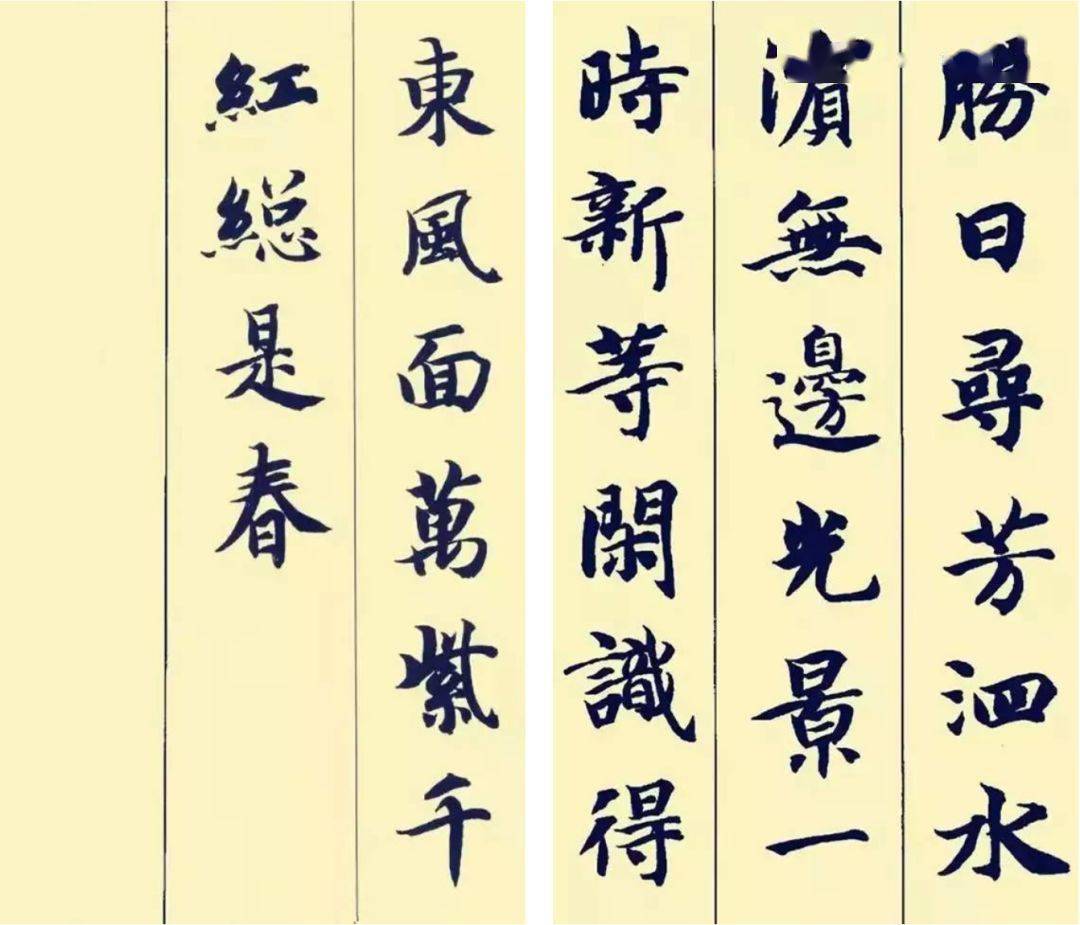 勝日尋芳泗水
濵無邊光景一
時新等閑識得
東風面萬紫千
紅総是春